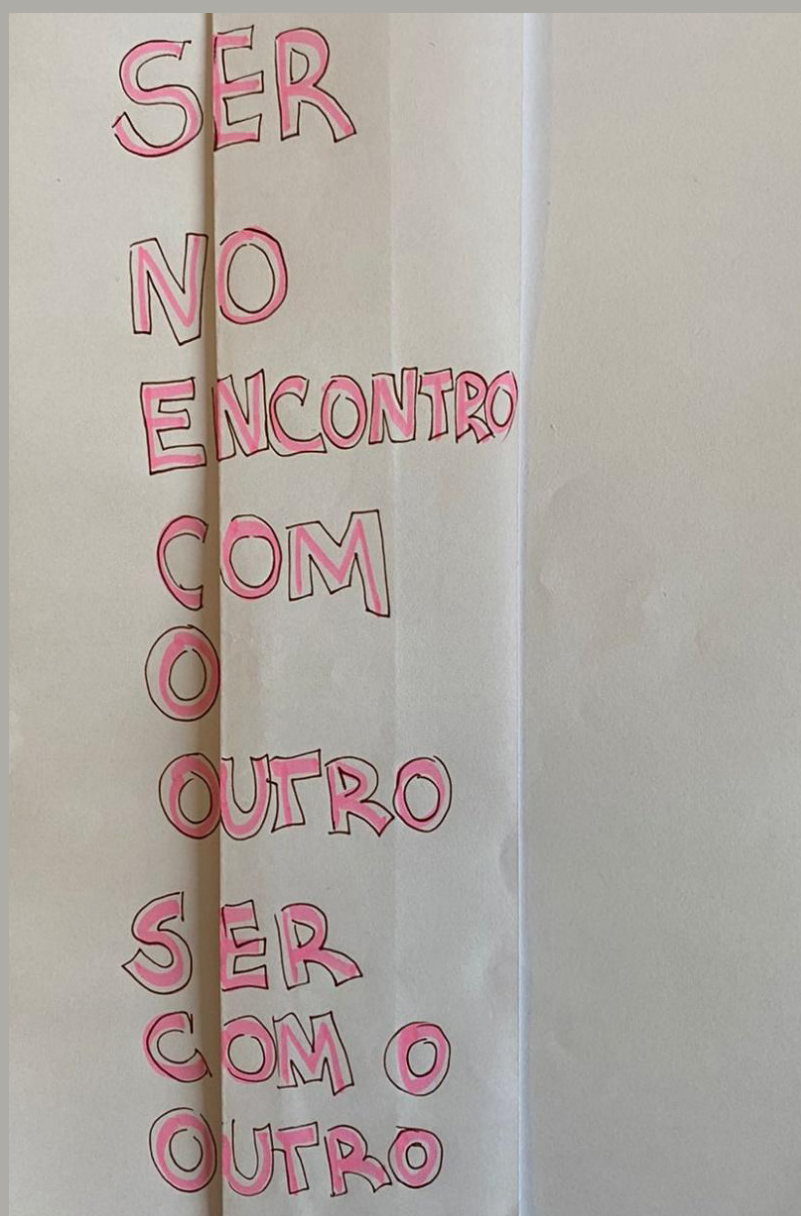 SER
NO
ENCONTRO
COM
O
OUTRO
SER
COM O
OUTRO